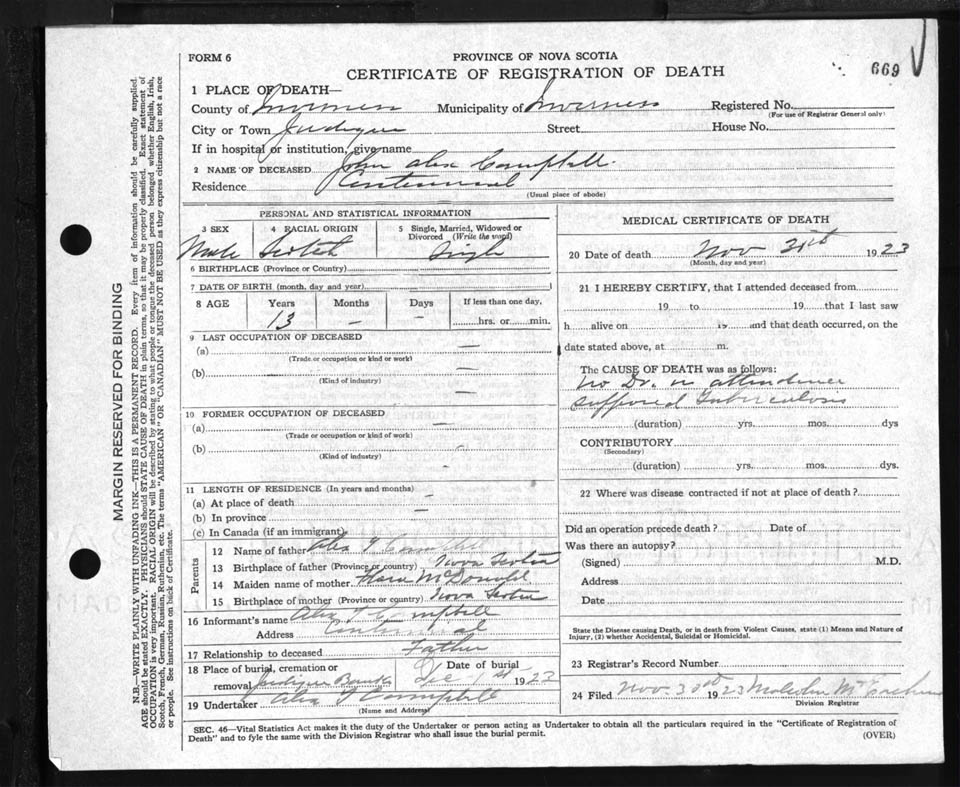 669
FORM 6
PROVINCE OF NOVA SCOTIA
CERTIFICATE OF REGISTRATION OF DEATH
1 PLACE OF DEATH—
County of Inverness Municipality of Inverness Registered No.
(For use of Registrar General only)
City or Town Judique Street House No.
If in hospital or institution, give name
2 NAME OF DECEASED John Alex Campbell.
Residence Centennial
(Usual place of abode)
PERSONAL AND STATISTICAL INFORMATION
3 SEX 4 RACIAL ORIGIN 5 Single, Married, Widowed or Divorced (Write the word)
Male Scotch Single
6 BIRTHPLACE (Province or Country)
7 DATE OF BIRTH (month, day and year)
8 AGE Years Months Days If less than one day,
13 — — hrs. or min.
9 LAST OCCUPATION OF DECEASED
(a) —
(Trade or occupation or kind or work)
(b) —
(Kind of industry)
10 FORMER OCCUPATION OF DECEASED
(a) —
(Trade or occupation or kind of work)
(b) —
(Kind of industry)
11 LENGTH OF RESIDENCE (In years and months)
(a) At place of death —
(b) In province
(c) In Canada (if an immigrant)
Parents
12 Name of father Alex Campbell
13 Birthplace of father (Province or country) Nova Scotia
14 Maiden name of mother Flora McDonald
15 Birthplace of mother (Province or country) Nova Scotia
16 Informant's name Alex Campbell
Address Centennial
17 Relationship to deceased Father
18 Place of burial, cremation or removal Judique Date of burial Dec 1st 1923
19 Undertaker Alex Campbell
(Name and Address)
MEDICAL CERTIFICATE OF DEATH
20 Date of death Nov 1923
(Month, day and year)
21 I HEREBY CERTIFY, that I attended deceased from
19 to 19 that I last saw
h alive on 19 and that death occurred, on the
date stated above, at m.
The CAUSE OF DEATH was as follows:
No Dr. in attendence
Tuberculosis
(duration) yrs. mos. dys
CONTRIBUTORY
(Secondary)
(duration) yrs. mos. dys.
22 Where was disease contracted if not at place of death?
Did an operation precede death? Date of
Was there an autopsy?
(Signed) M.D.
Address
Date
State the Disease causing Death, or in death from Violent Causes, state (1) Means and Nature of
Injury, (2) whether Accidental, Suicidal or Homicidal.
23 Registrar's Record Number
24 Filed Nov. 30th 1923 Malcolm
Division Registrar
SEC. 46—Vital Statistics Act makes it the duty of the Undertaker or person acting as Undertaker to obtain all the particulars required in the "Certificate of Registration of
Death" and to fyle the same with the Division Registrar who shall issue the burial permit.
(OVER)
MARGIN RESERVED FOR BINDING
N.B.—WRITE PLAINLY WITH UNFADING INK—THIS IS A PERMANENT RECORD. Every item of information should be carefully supplied.
AGE should be stated EXACTLY. PHYSICIANS should STATE CAUSE OF DEATH in plain terms, so that it may be properly classified. Exact statement of
OCCUPATION is very important. RACIAL ORIGIN will be described by stating to what people or tongue the deceased person belonged whether English, Irish,
Scotch, French, German, Russian, Ruthenian, etc. The terms "AMERICAN" OR "CANADIAN" MUST NOT BE USED as they express citizenship but not a race
or people. See instructions on back of Certificate.